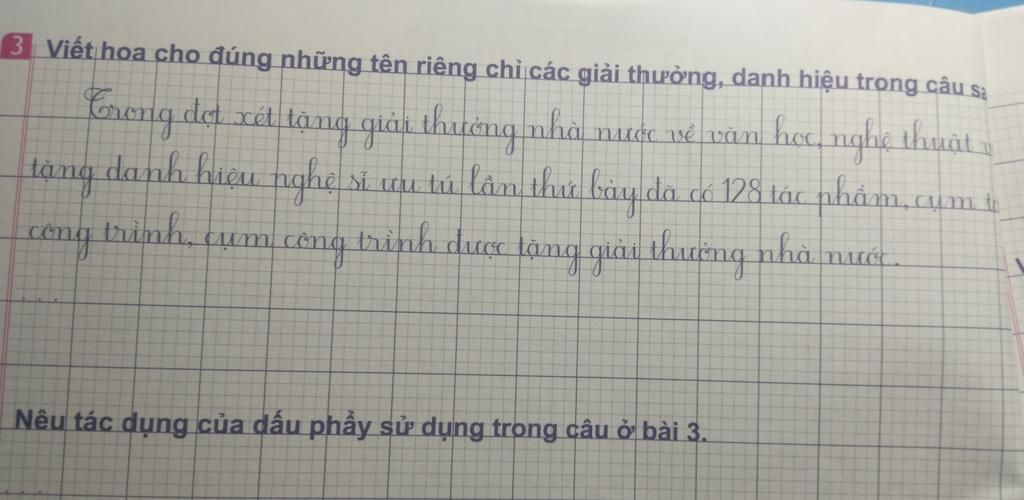 3 Viết hoa cho đúng những tên riêng chỉ các giải thưởng, danh hiệu trong câu
Trong đợt xét tặng giải thưởng nhà nước về văn học, nghệ thuật
tặng danh hiệu nghệ sĩ ưu tú lần thứ bảy đã có 128 tác phẩm, cụm
công trình, cụm công trình được tặng giải thưởng nhà nước.
...
Nêu tác dụng của dấu phẩy sử dụng trong câu ở bài 3.
...